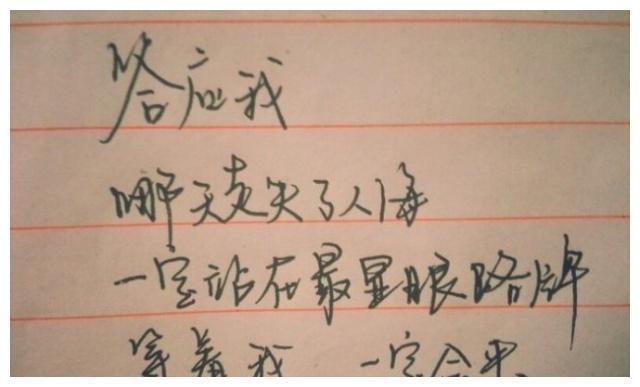 答应我
哪天走失了人海
一定站在最显眼路牌
等着我 一定会来